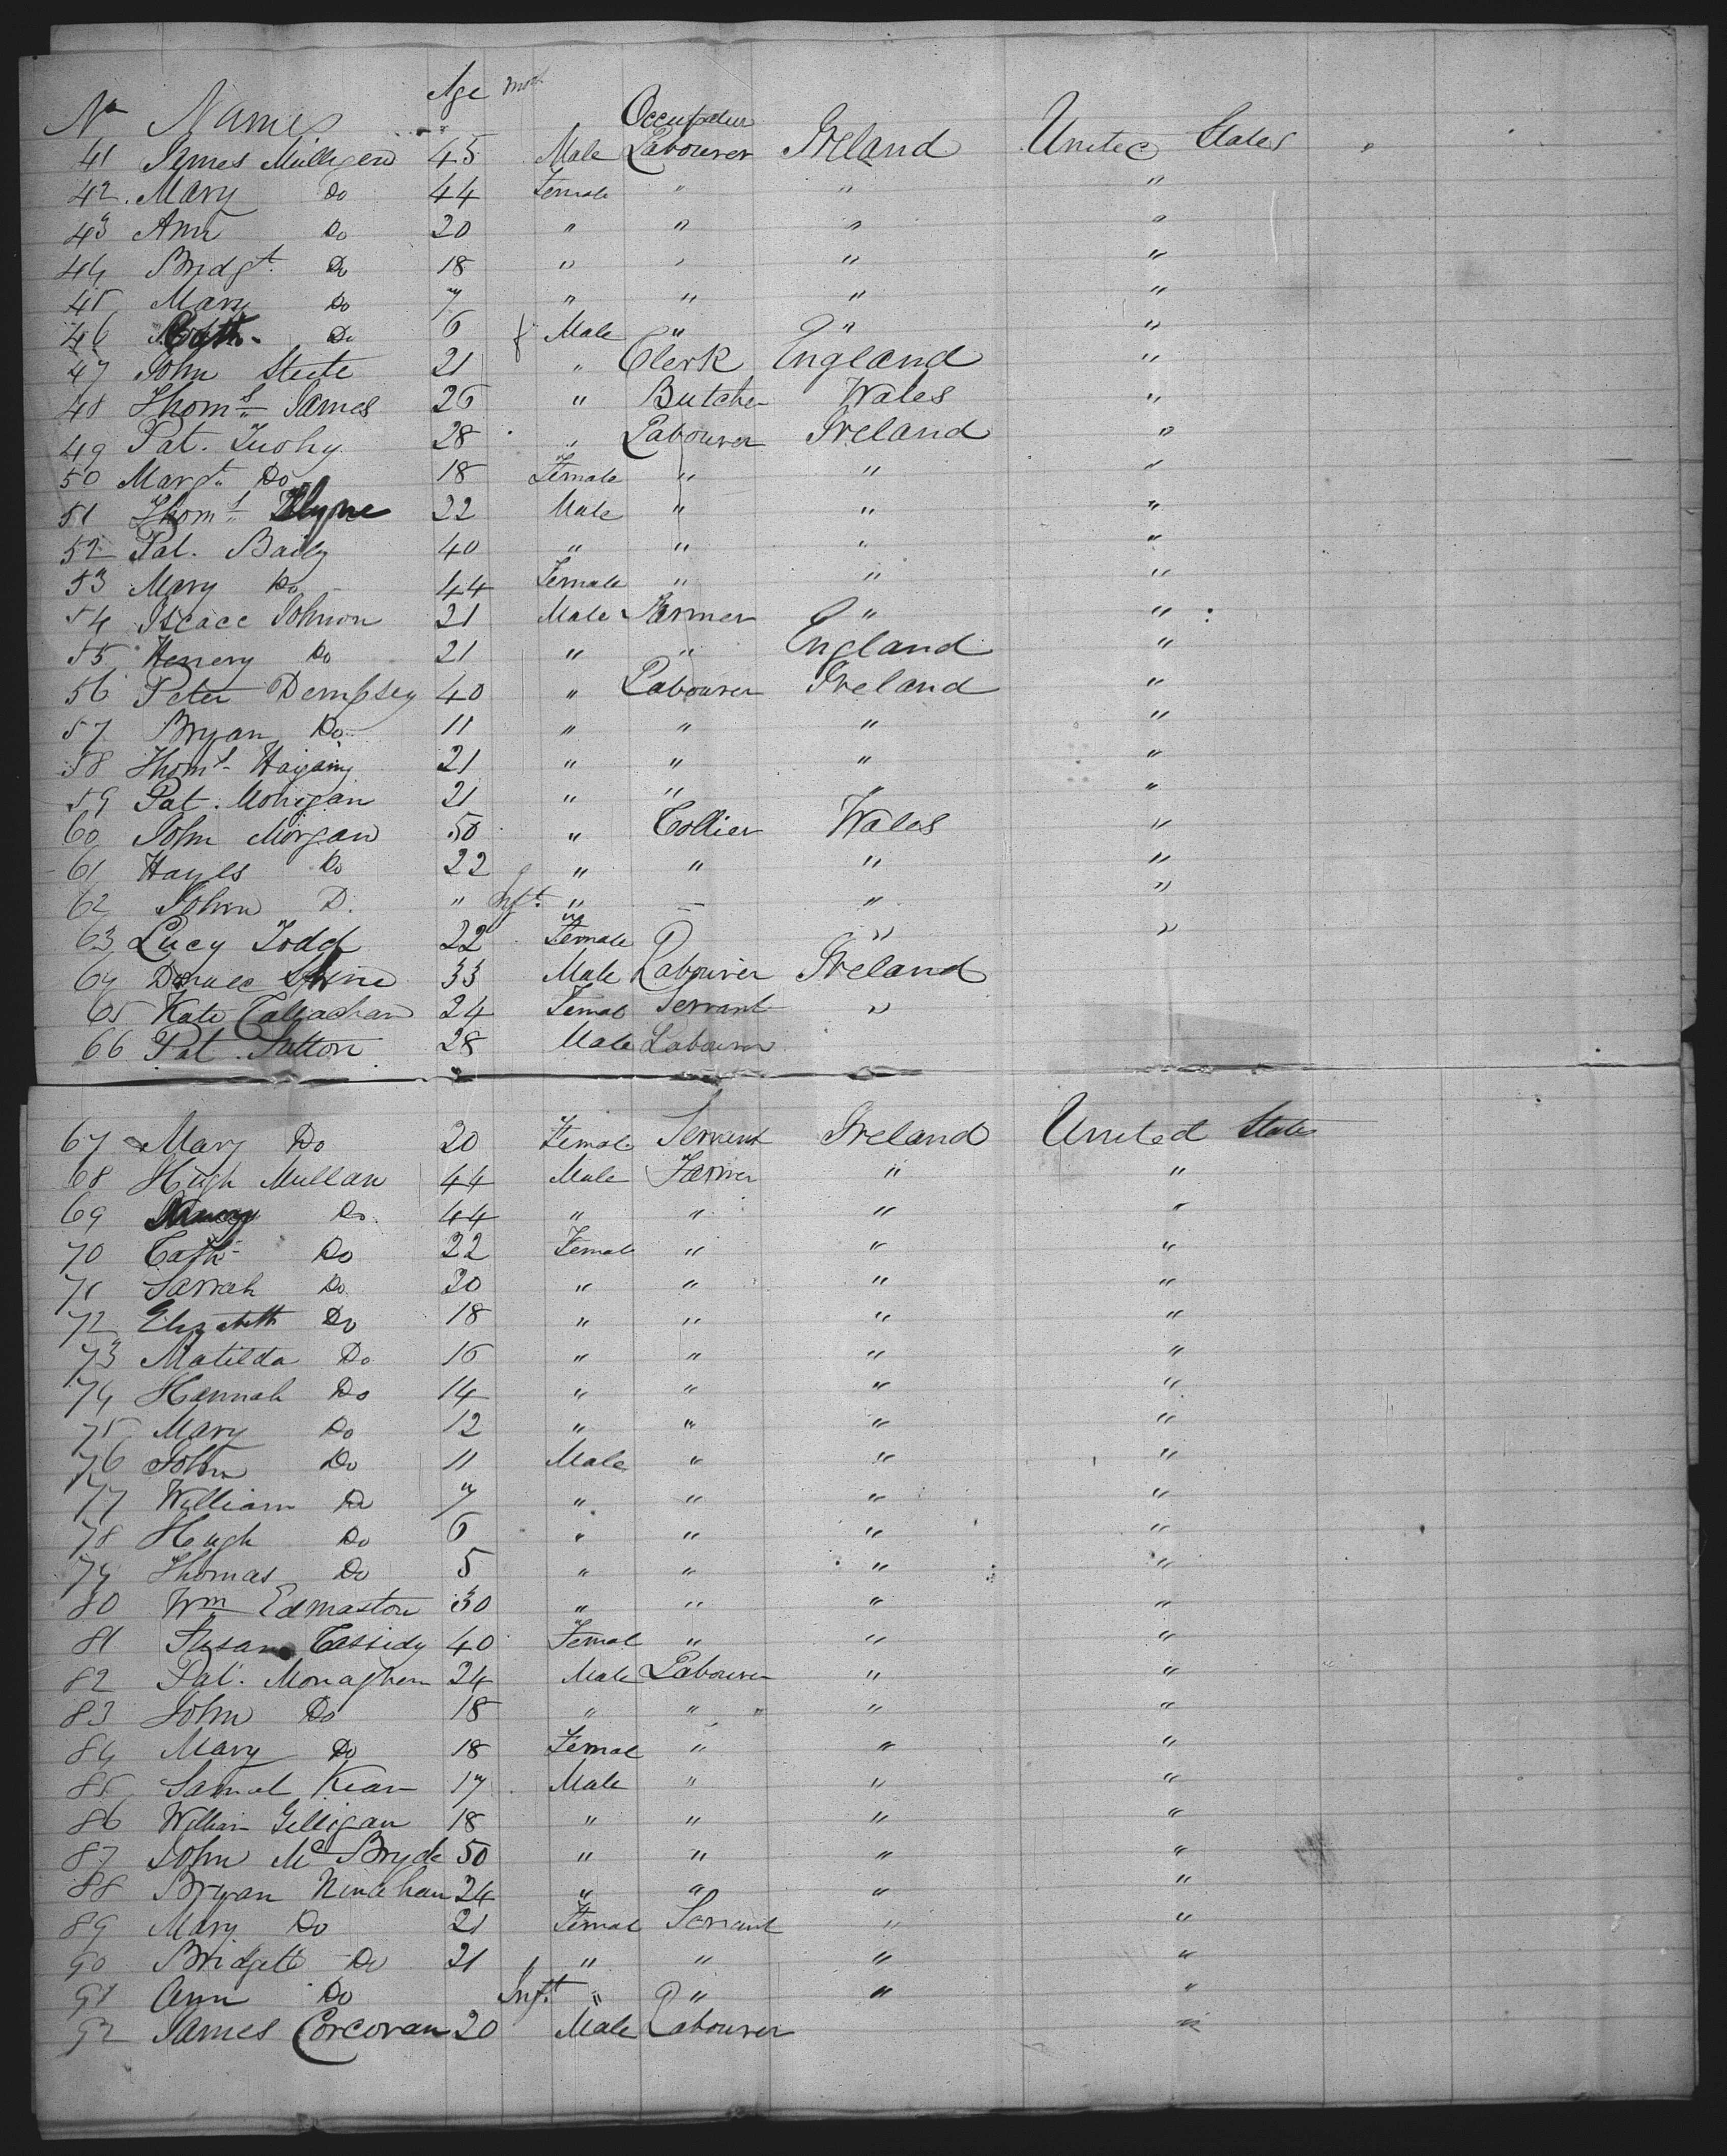 No Names Age mos Occupation
41 James Milligen 45 Male Labourer Ireland United States "
42. Mary Do 44 Female " " "
43 Ann Do 20 " " " "
44 Bridgt. Do 18 " " " "
45 Mary Do 7 " " " "
46 Cath. Do 6 f Male " " "
47 John Steete 21 " Clerk England "
48 Thoms James 26 " Butcher Wales "
49 Pat. Tuohy 28 " Labourer Ireland "
50 Margt. Do 18 Female " " "
51 Thoms 22 Male " " "
52 Pat. Baily 40 " " " "
53 Mary Do 44 Female " " "
54 Iscacc Johnson 21 Male Farmer " "
55 Henery Do 21 " " England "
56 Peter Dempsey 40 " Labourer Ireland "
57 Bryan Do 11 " " " "
58 Thoms 21 " " " "
59 Pat. Monigan 21 " " " "
60 John Morgan 50 " Collier Wales "
61 Hayes Do 22 " " " "
62 John D. " Inft. " – " "
63 Lucy Todd 22 Female " "
64 33 Male Labourer Ireland
65 Kate Callaghan 24 Femal Servant "
66 Pat. Sutton 28 Male Labourer
67 Mary Do 20 Female Servant Ireland United States
68 Hugh Mullan 44 Male Farmer " "
69 Nancy Do 44 " " " "
70 Cath Do 22 Female " " "
71 Sarrah Do 20 " " " "
72 Elizabeth Do 18 " " " "
73 Matilda Do 16 " " " "
74 Hannah Do 14 " " " "
75 Mary Do 12 " " " "
76 John Do 11 Male " " "
77 William Do 7 " " " "
78 Hugh Do 6 " " " "
79 Thomas Do 5 " " " "
80 Wm Edmaston 30 " " " "
81 Susan Cassidy 40 Femal " " "
82 Pat. Monaghen 24 Male Labourer " "
83 John Do 18 " " " " "
84 Mary Do 18 Femal " " "
85 Samul Kean 17 Male " " "
86 William Gilligan 18 " " " "
87 John Mc Bryde 50 " " " "
88 Bryan 24 " " " "
89 Mary Do 21 Femal Servant " "
90 Bridgett Do 21 " " " "
91 Ann Do Inft. " " " "
92 James Corcoran 20 Male Labourer "